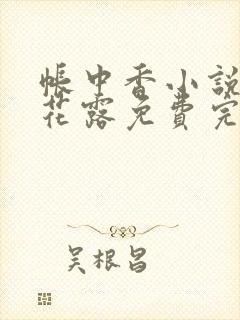 帳中香小說
花露免費完
吳根昌